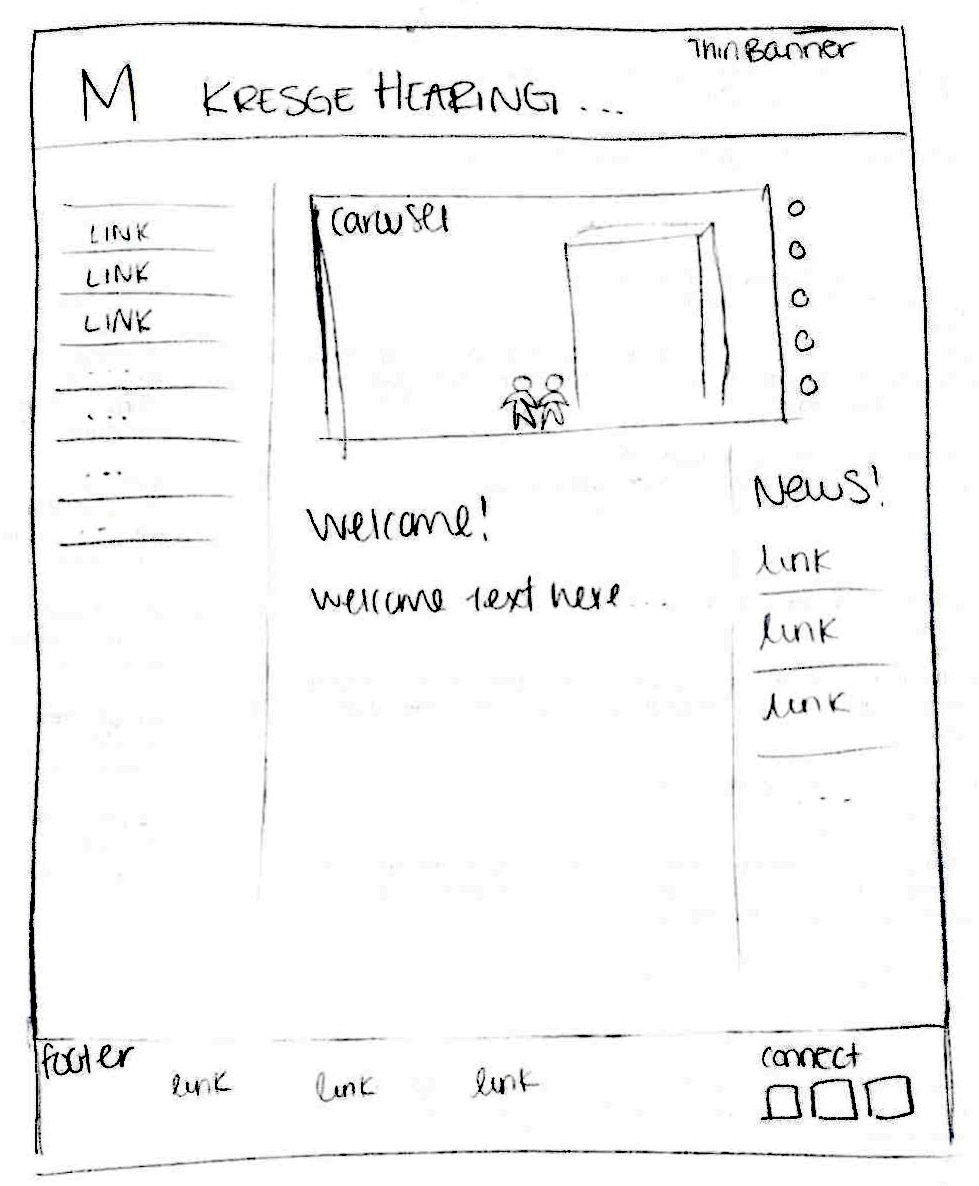 Thin Banner
M KRESGE HEARING...
LINK
LINK
LINK
...
...
...
...
carousel
Welcome!
welcome text here...
News!
link
link
link
...
footer
link link link
connect